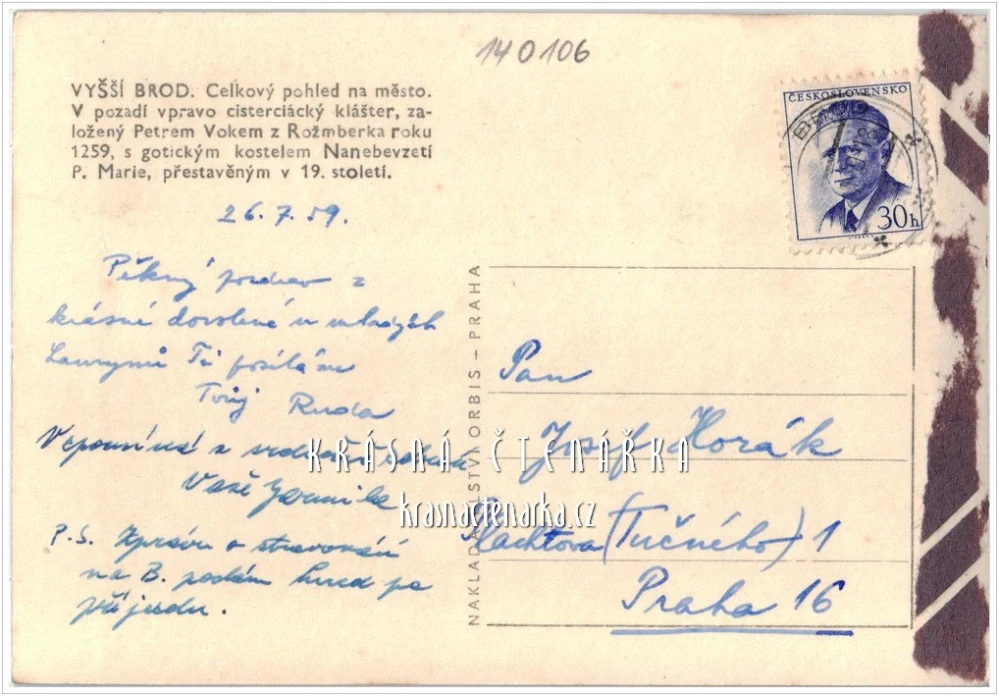 140106
VYŠŠÍ BROD. Celkový pohled na město.
V pozadí vpravo cisterciácký klášter, za-
ložený Petrem Vokem z Rožmberka roku
1259, s gotickým kostelem Nanebevzetí
P. Marie, přestavěným v 19. století.
ČESKOSLOVENSKO
30h
26.7.59.
Pěkný pozdrav z
krásné dovolené u mladých
Ti posílám
Tvůj Ruda
Vzpomíná a
Vaše Jarmila
P.S. Zprávu o stravování
na B. podám hned po
příjezdu.
NAKLADATELSTVÍ ORBIS – PRAHA
Pan
Josef Horák
Plachtova (Tučného) 1
Praha 16
KRÁSNÁ ČTENÁŘKA
krasnactenarka.cz